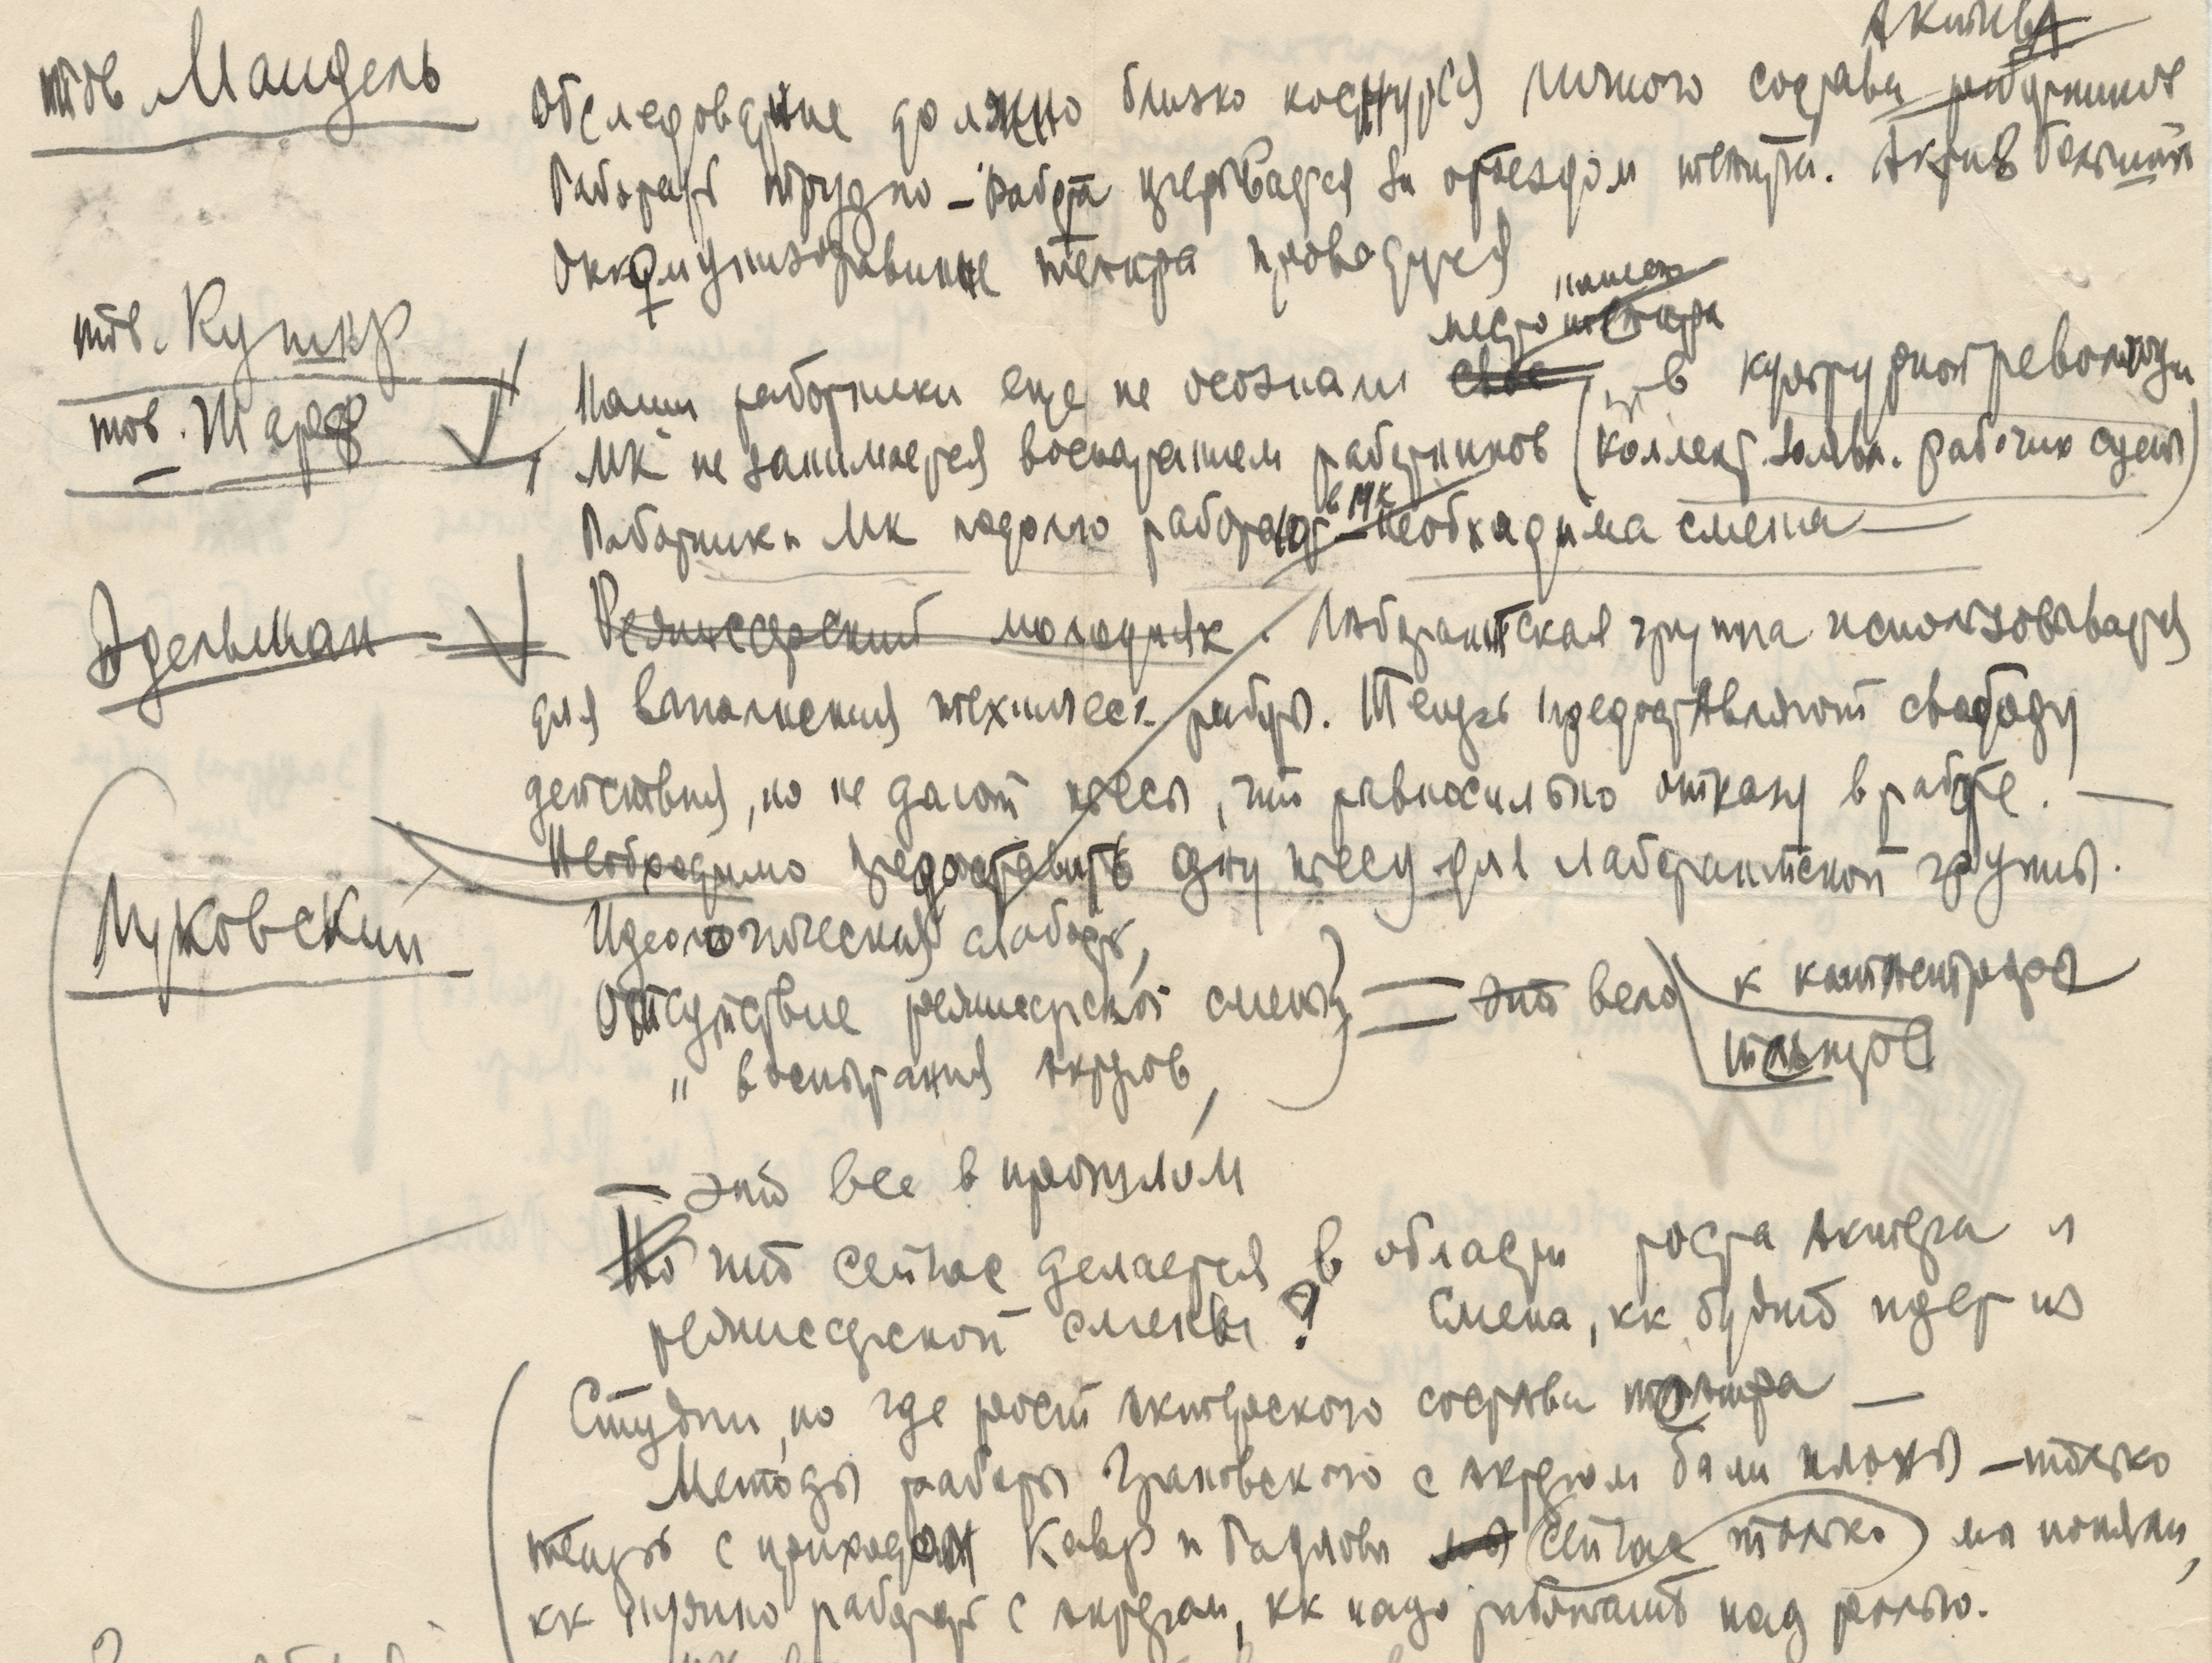 Актива
тов Мандель
Обследование должно близко коснуться личного состава работников
Работать трудно – работа прерывается за отъездом театра. Актив большой
Оккоммунизирование театра проводится
тов. Кушнер
нашего
место театра
Наши работники еще не осознали свое в культурной революции
тов. Шарф
МК не занимается воспитанием работников (коллект. рабочих сцены)
в МК
Работники МК подолго работают – необходима смена
Эдельман
Режиссерский молодняк. Лаборантская группа использовывается
для выполнения техническ. работы. Теперь предоставляют свободу
действия, но не дают пьесы, что равносильно отказу в работе. –
Необходимо предоставить одну пьесу для лаборантской группы.
Идеологическая слабость,
Луковский
Отсутствие режиссерской смены = это вело к
" воспитания актеров,
– это все в прошлом
Но что сейчас делается в области роста актера и
режиссерской смены? Смена, кк будто идет из
Студии, но где рост актерского состава театра –
Методы работы Грановского с актером были плохи – только
теперь с приходом Кавэр и Радлова мы (сейчас только) мы поняли,
кк нужно работать с актером, кк надо работать над ролью.